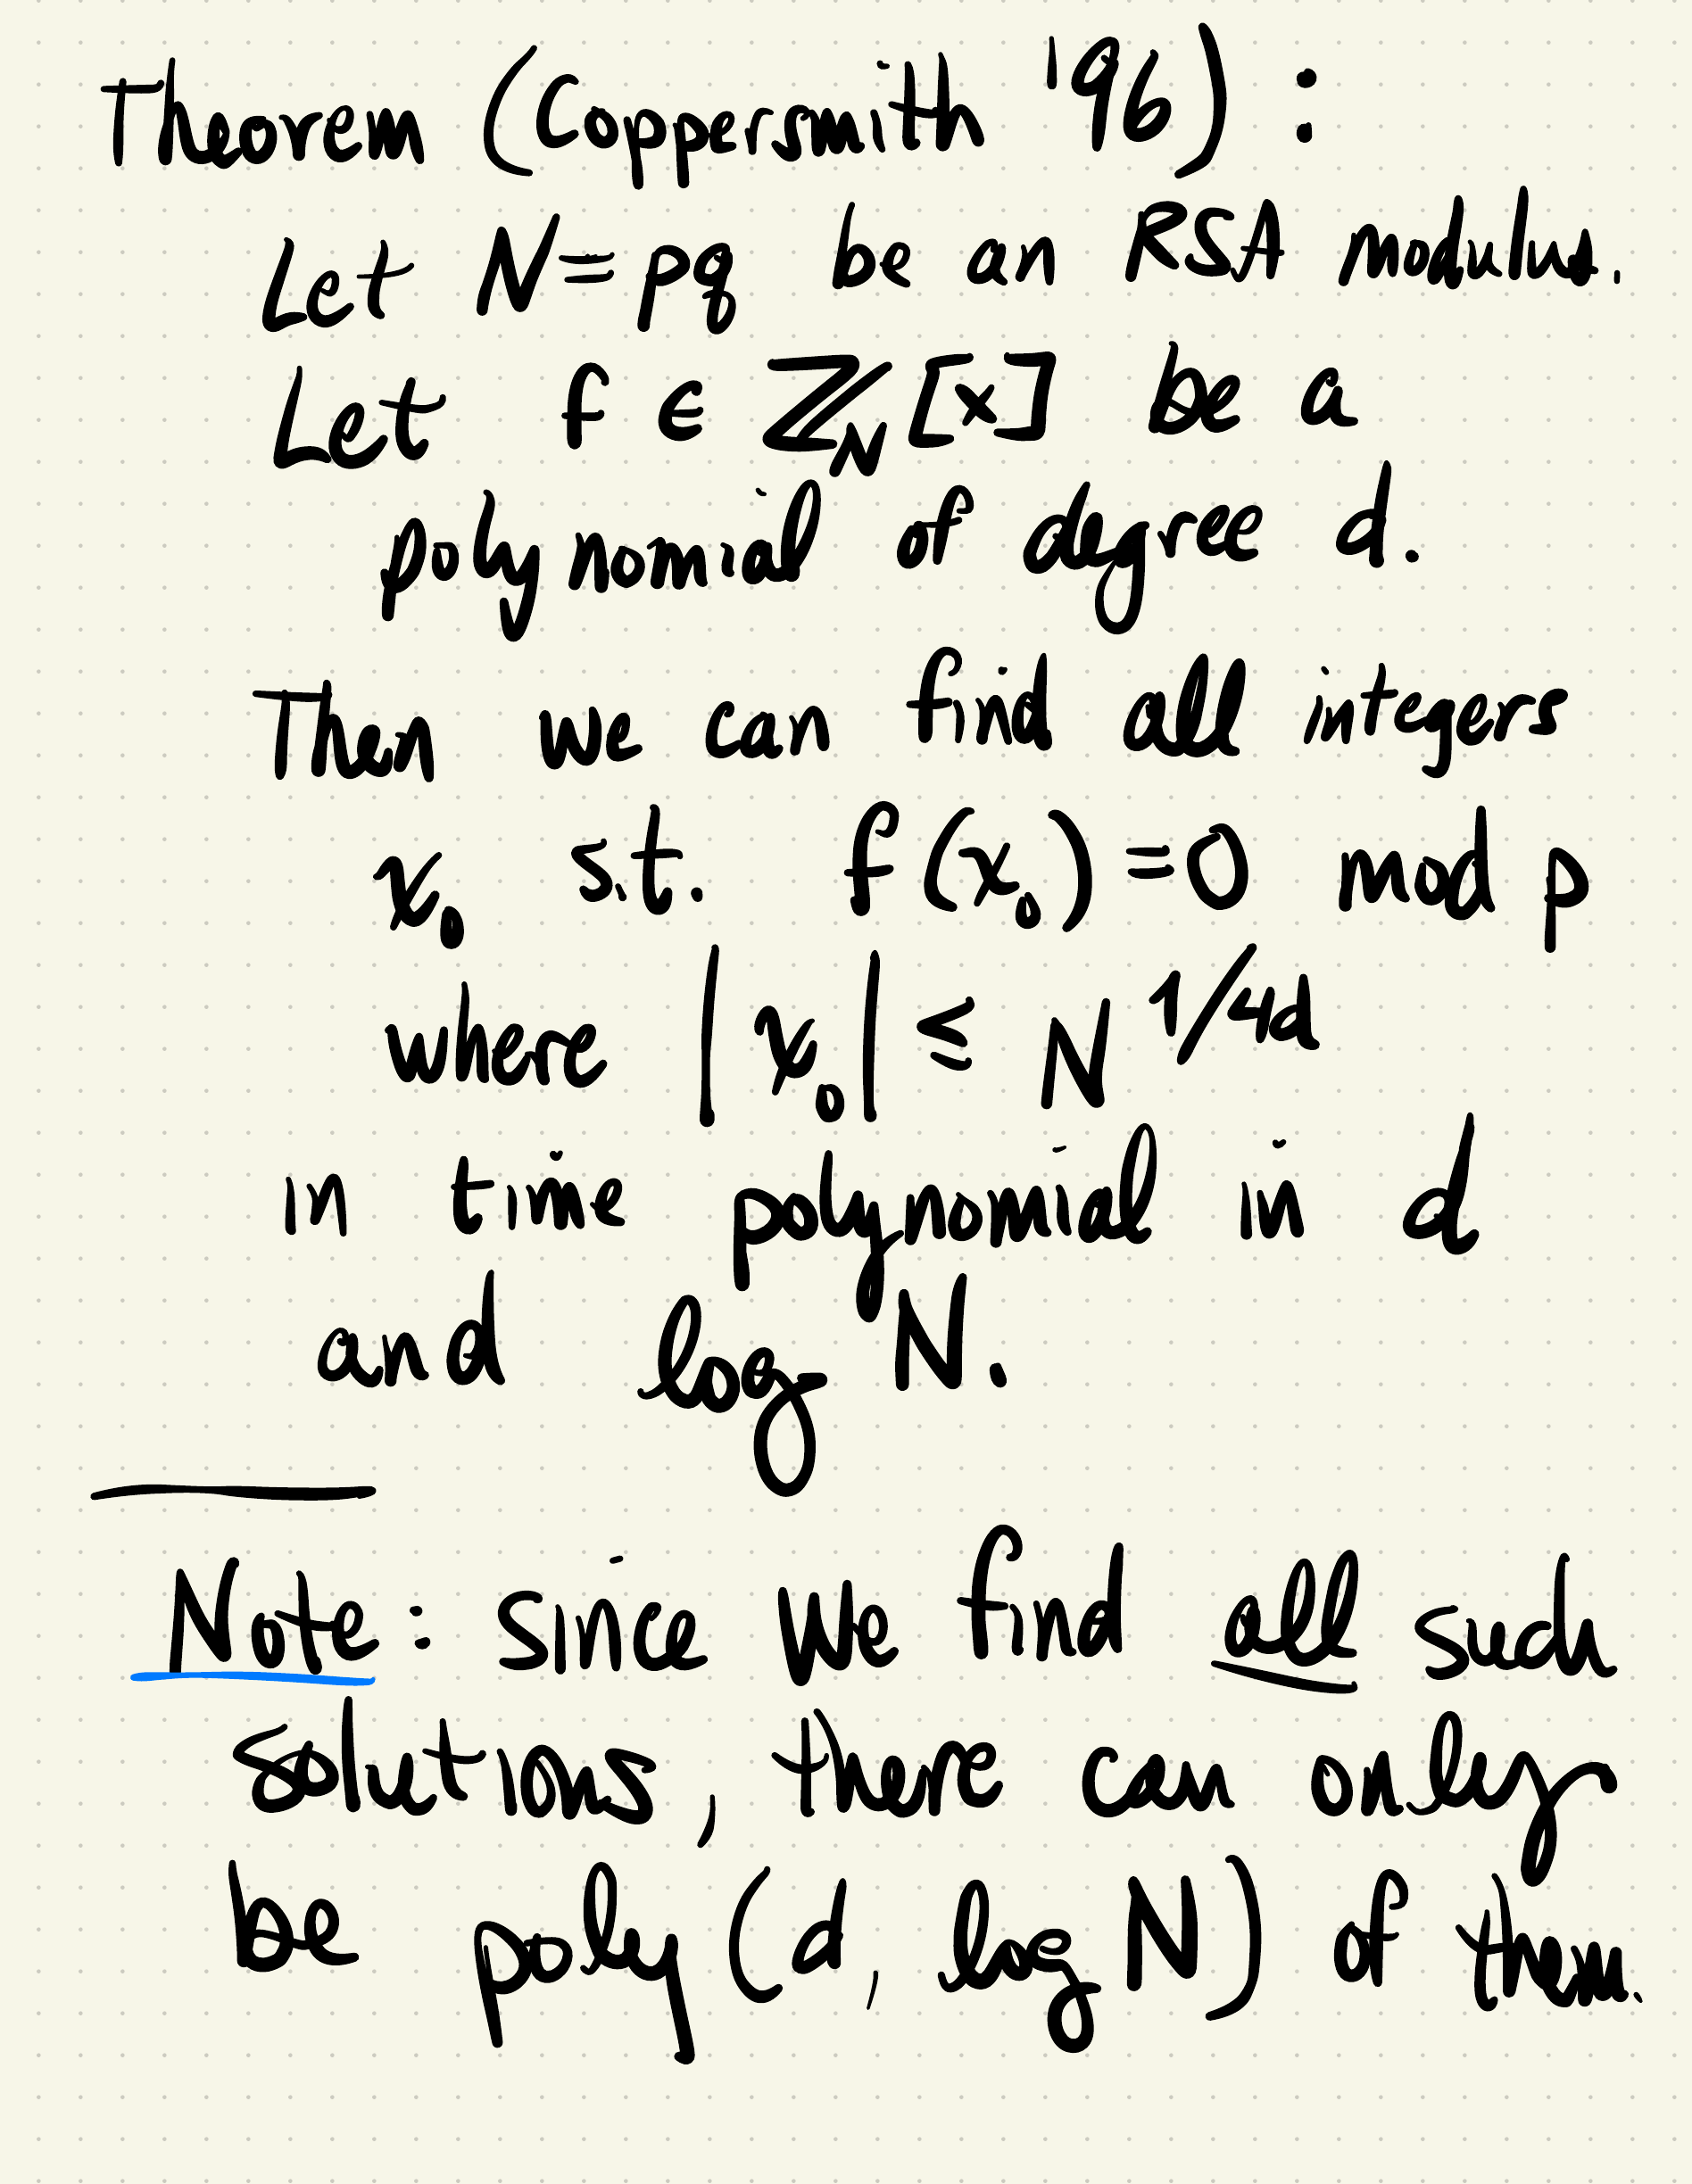 Theorem (Coppersmith '96) :
Let N=pq be an RSA modulus.
Let f ∈ ℤ_N [x] be a
polynomial of degree d.
Then we can find all integers
x₀ s.t. f(x₀) =0 mod p
where |x₀| ≤ N^1/4d
in time polynomial in d
and log N.
Note: since We find all such
solutions, there can only
be poly(d, log N) of them.